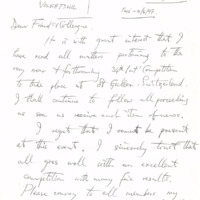 Dear Friend & Colleague,
It is with great interest that I
have read all matters pertaining to the
very near & forthcoming 34th Int. Competition
to take place at St Gallen - Switzerland.
I shall continue to follow all proceedings
as soon as receive such items of news.
I regret that I cannot be present
at this event. I sincerely trust that
all goes well with an excellent
competition with many fine results.
Please convey to all members my